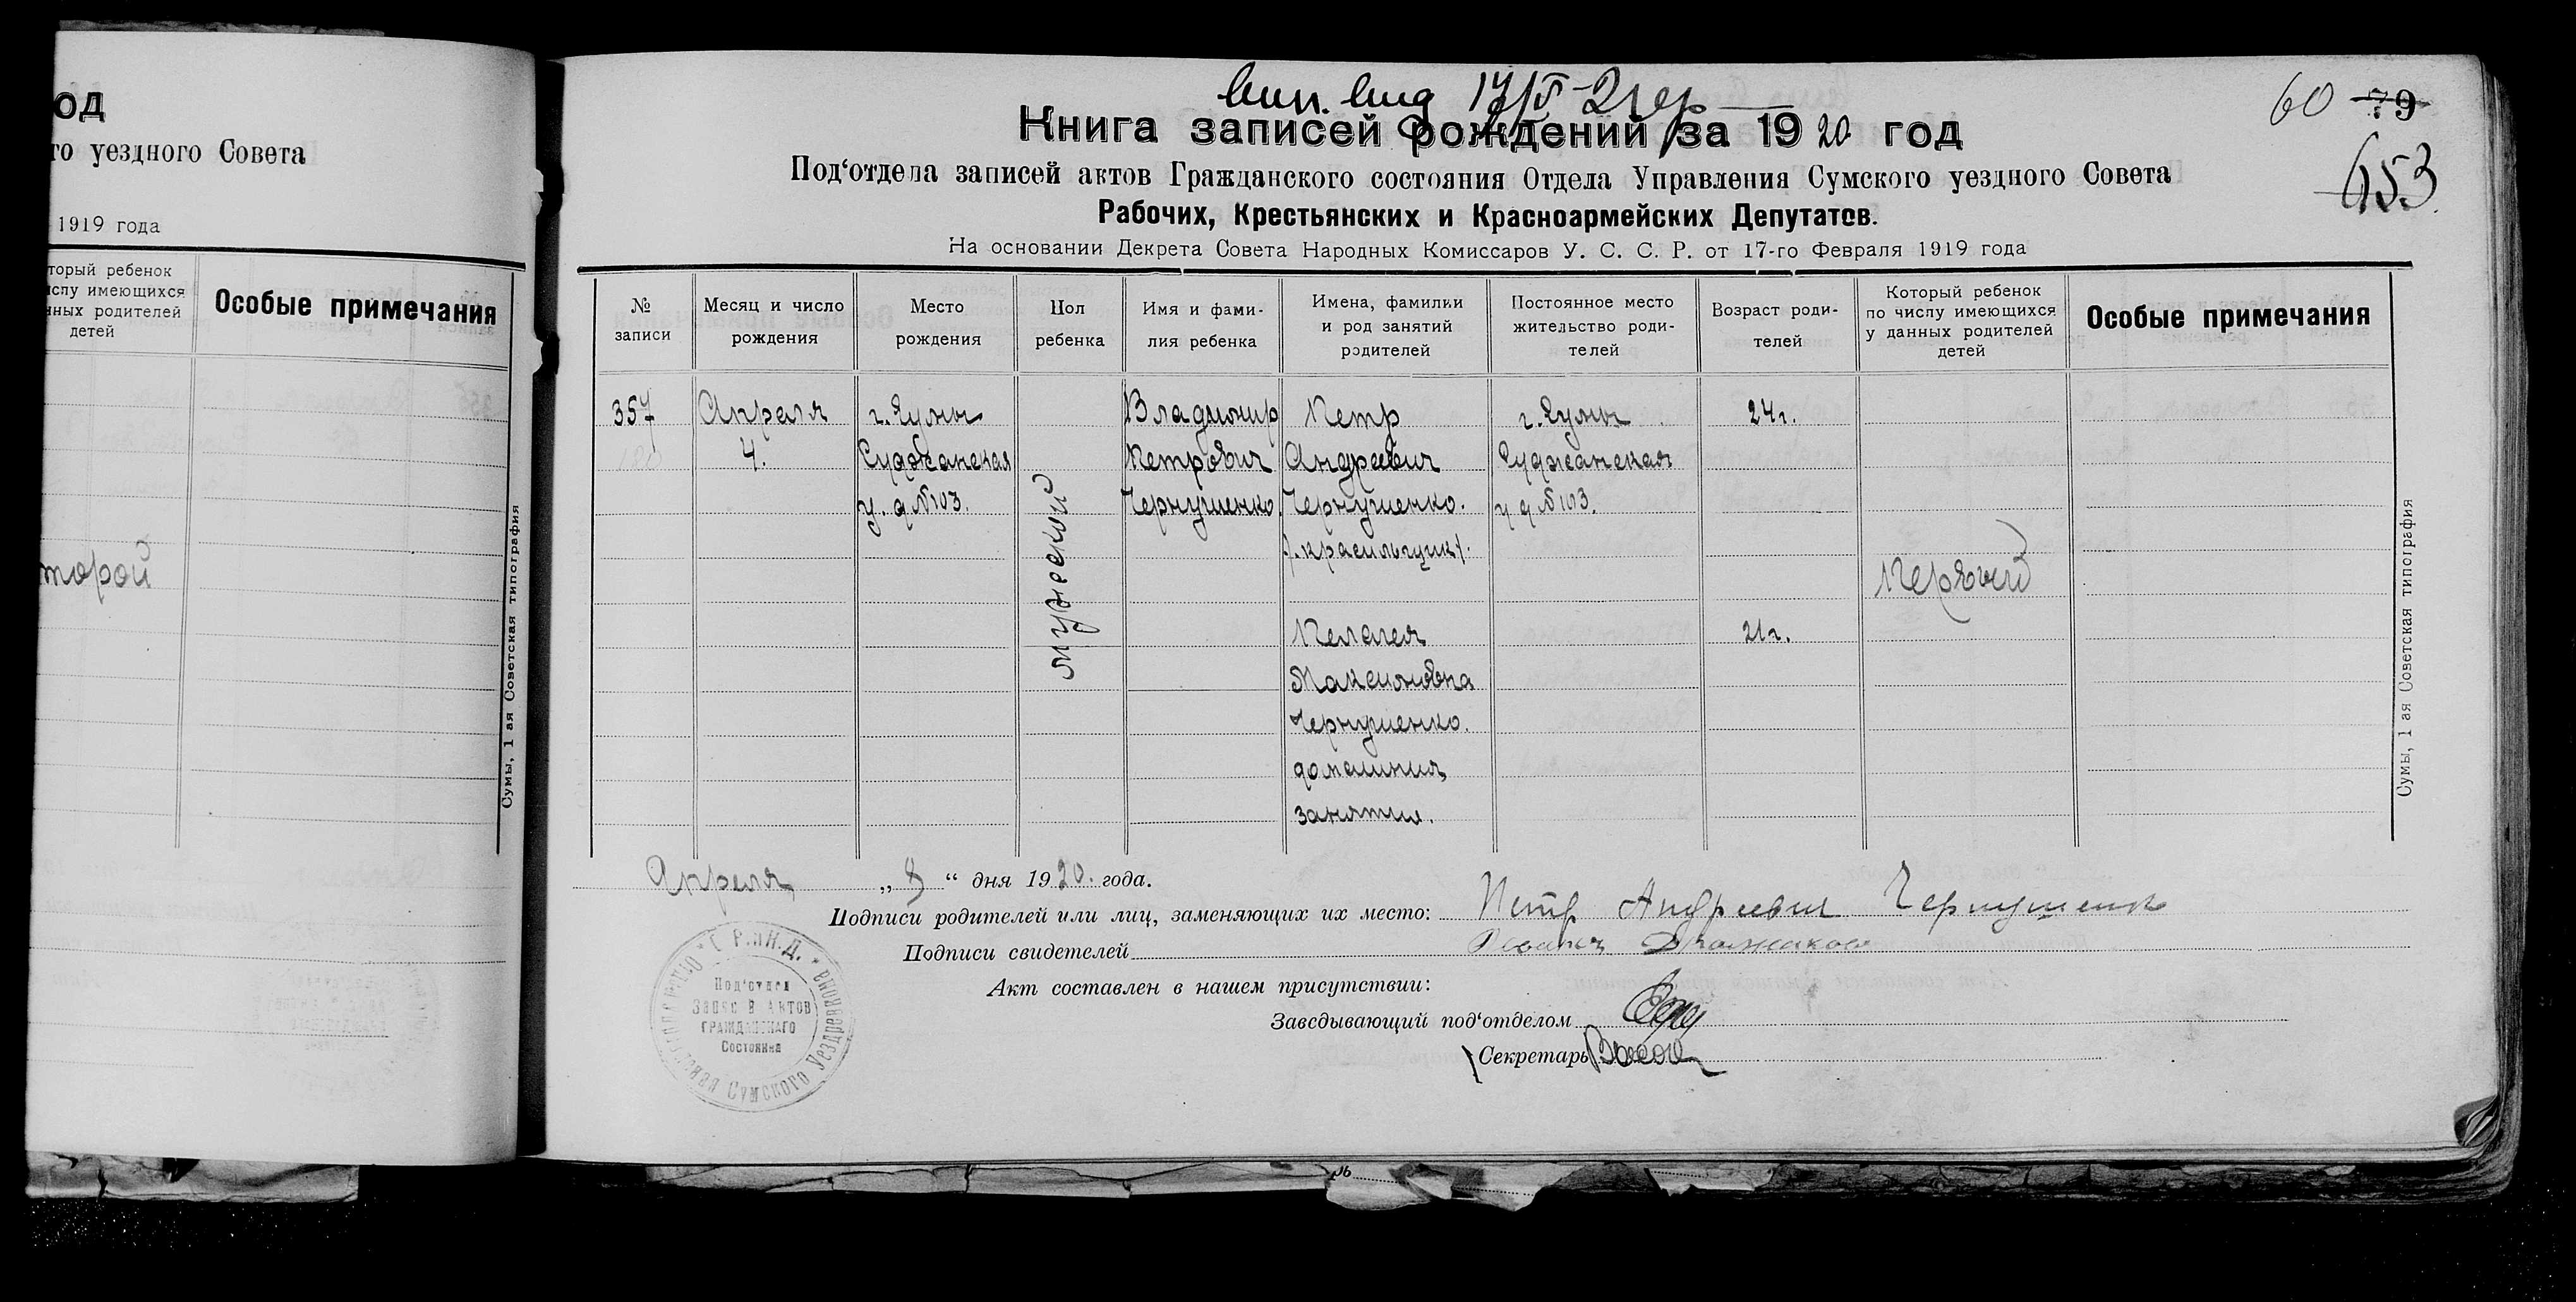 од
го уездного Совета
1919 года
торый ребенок
ислу имеющихся
нных родителей
детей
Особые примечания
торой
Сумы, 1 ая Советская типография
60 79
653
Книга записей рождений за 1920 год
Под‘отдела записей актов Гражданского состояния Отдела Управления Сумского уездного Совета
Рабочих, Крестьянских и Красноармейских Депутатов.
На основании Декрета Совета Народных Комиссаров У. С. С. Р. от 17-го Февраля 1919 года
№ записи
Месяц и число рождения
Место рождения
Пол ребенка
Имя и фами-
лия ребенка
Имена, фамилии
и род занятий
родителей
Постоянное место
жительство роди-
телей
Возраст роди-
телей
Который ребенок
по числу имеющихся
у данных родителей
детей
Особые примечания
357
Апреля
4.
г. Сумы
Суджанская
у. д №103.
мужеский
Владимир
Петрович
Чернушенко.
Петр
Андреевич
Чернушенко.
красильщик
Пелагея
Максимовна
Чернушенко.
домашния
занятия.
г. Сумы
Суджанская
у д №103.
24г.
21г.
первый
Сумы, 1 ая Советская типография
Апреля „8“ дня 1920. года.
Подписи родителей или лиц, заменяющих их место: Петр Андреевич Чернушенко
Подписи свидетелей
Акт составлен в нашем присутствии:
Заведывающий под‘отделом
Секретарь
Под‘отдел
Записей Актов
Гражданскаго
Состояния
Сумского Уездревкома